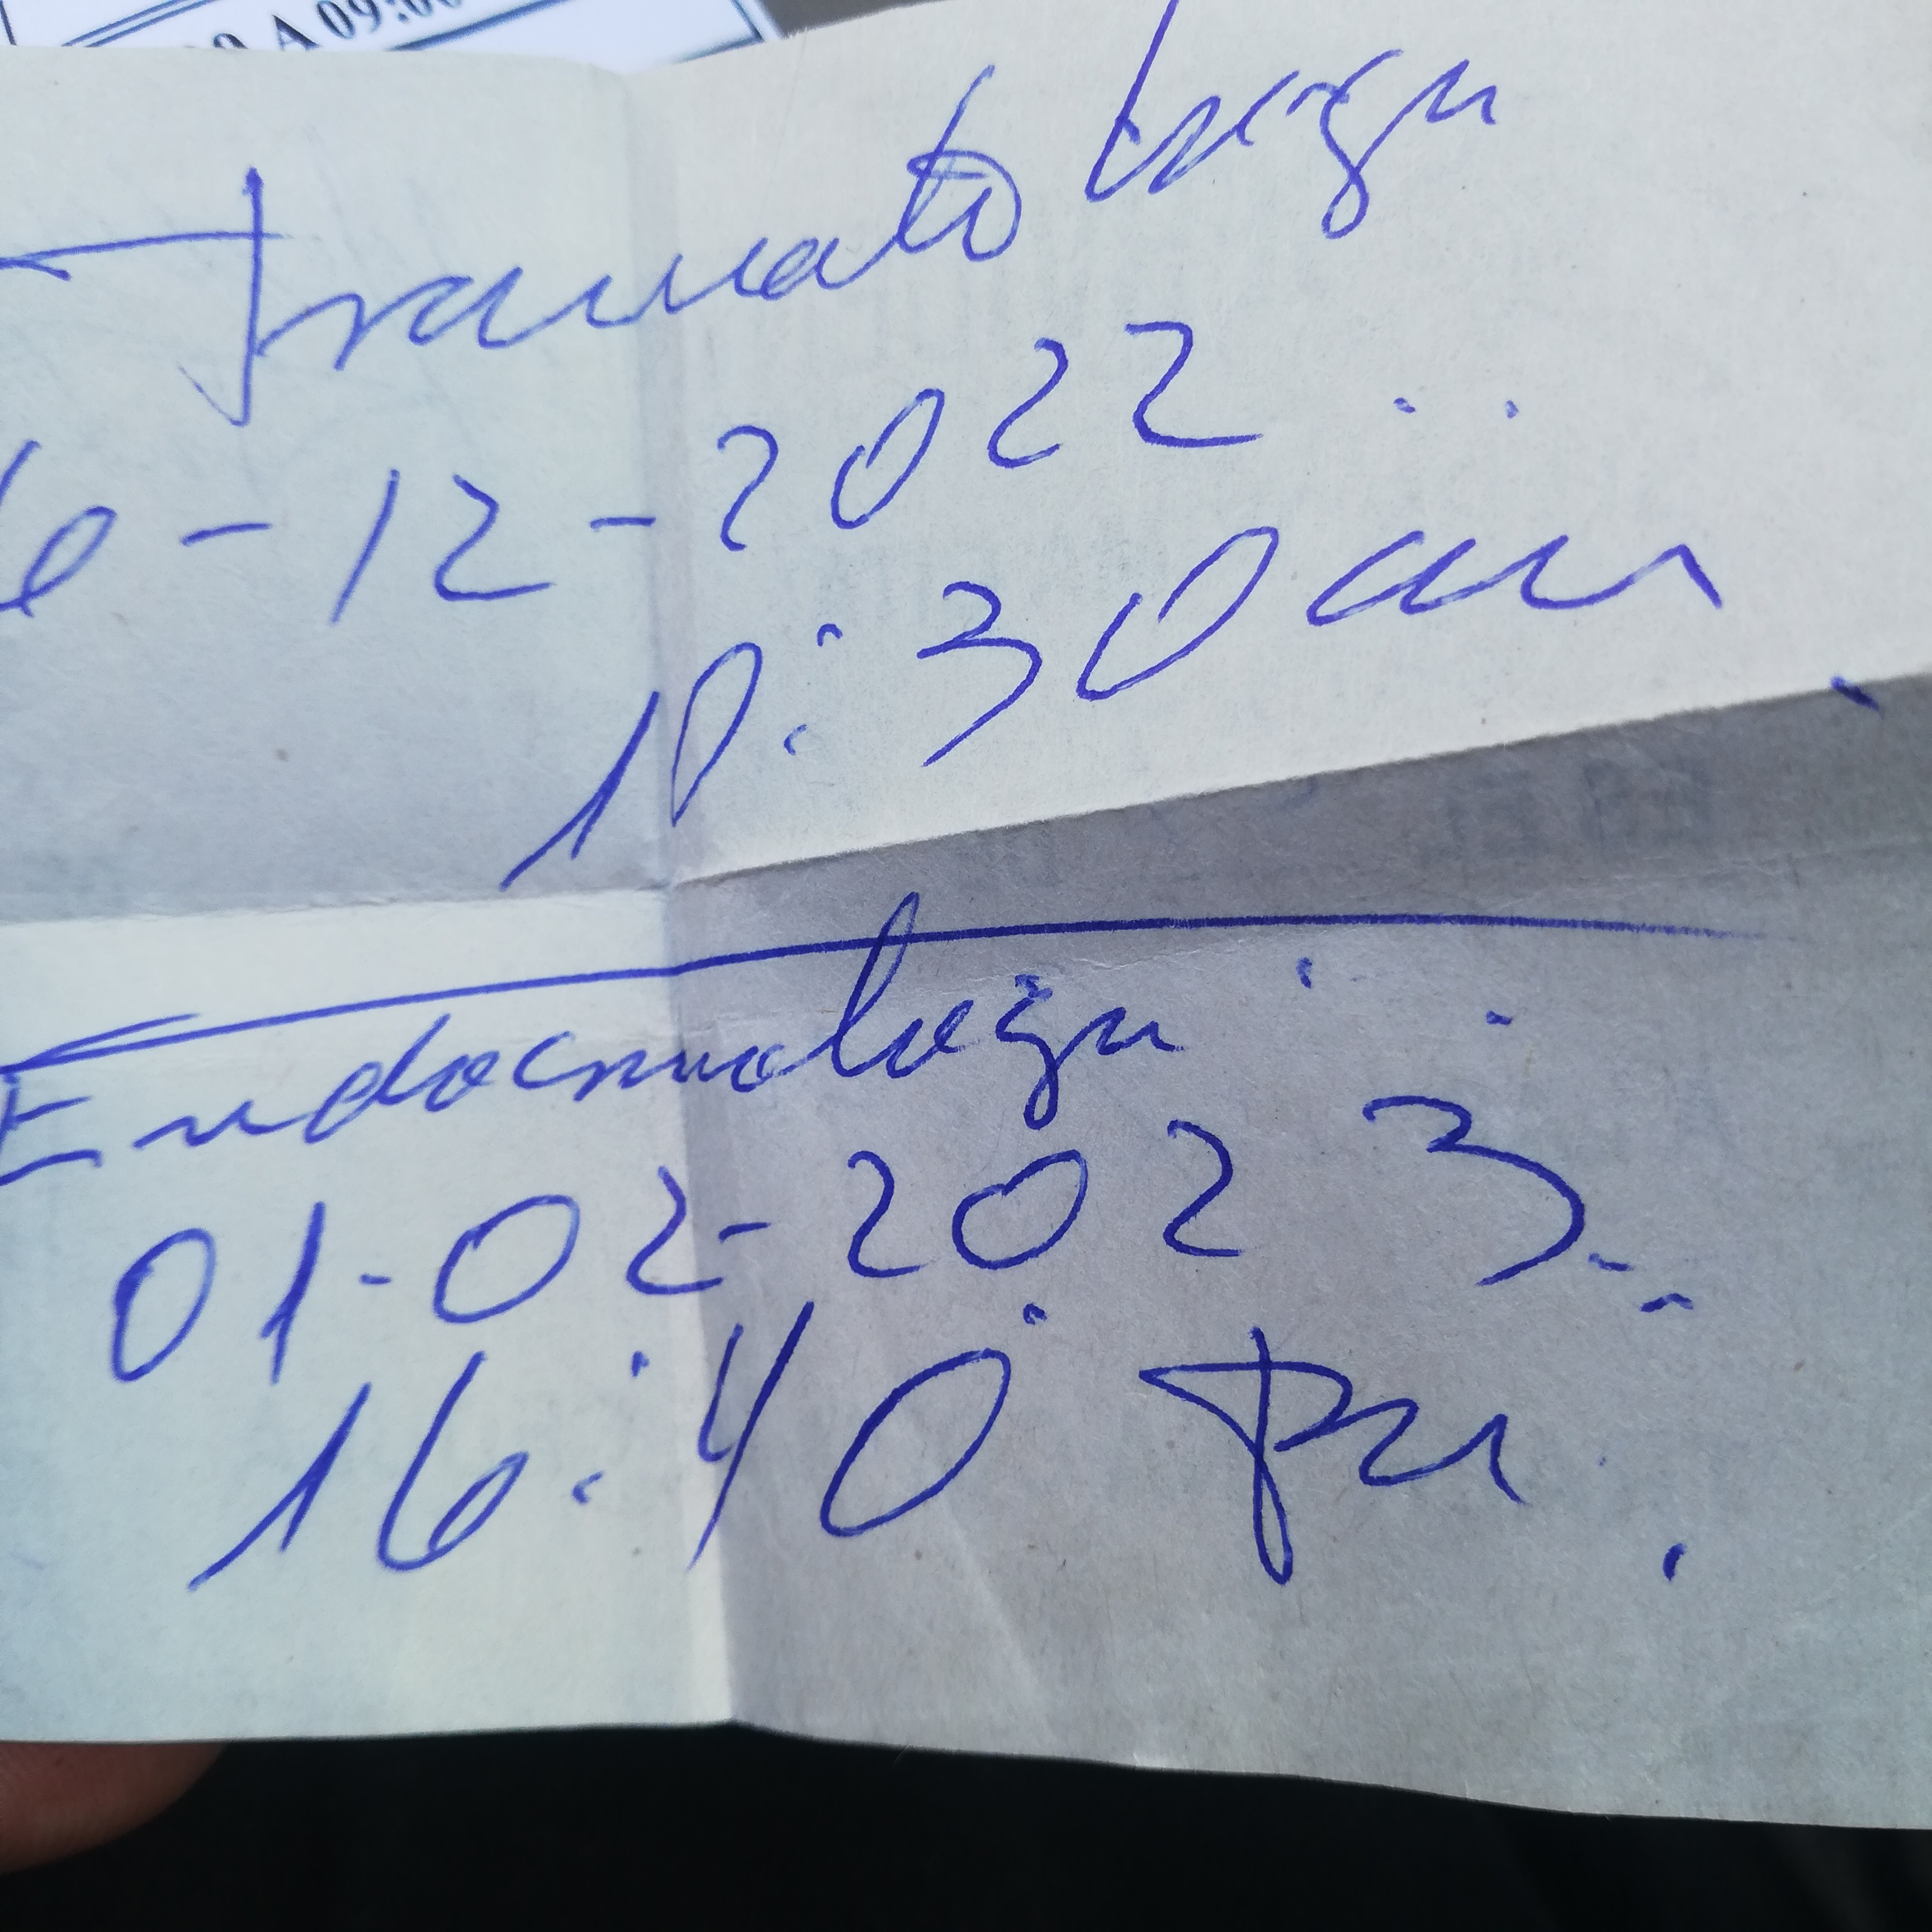 A 09:00
Traumatologia
6-12-2022
10:30 am
Endocrinologia
01-02-2023
16:40 Pm.